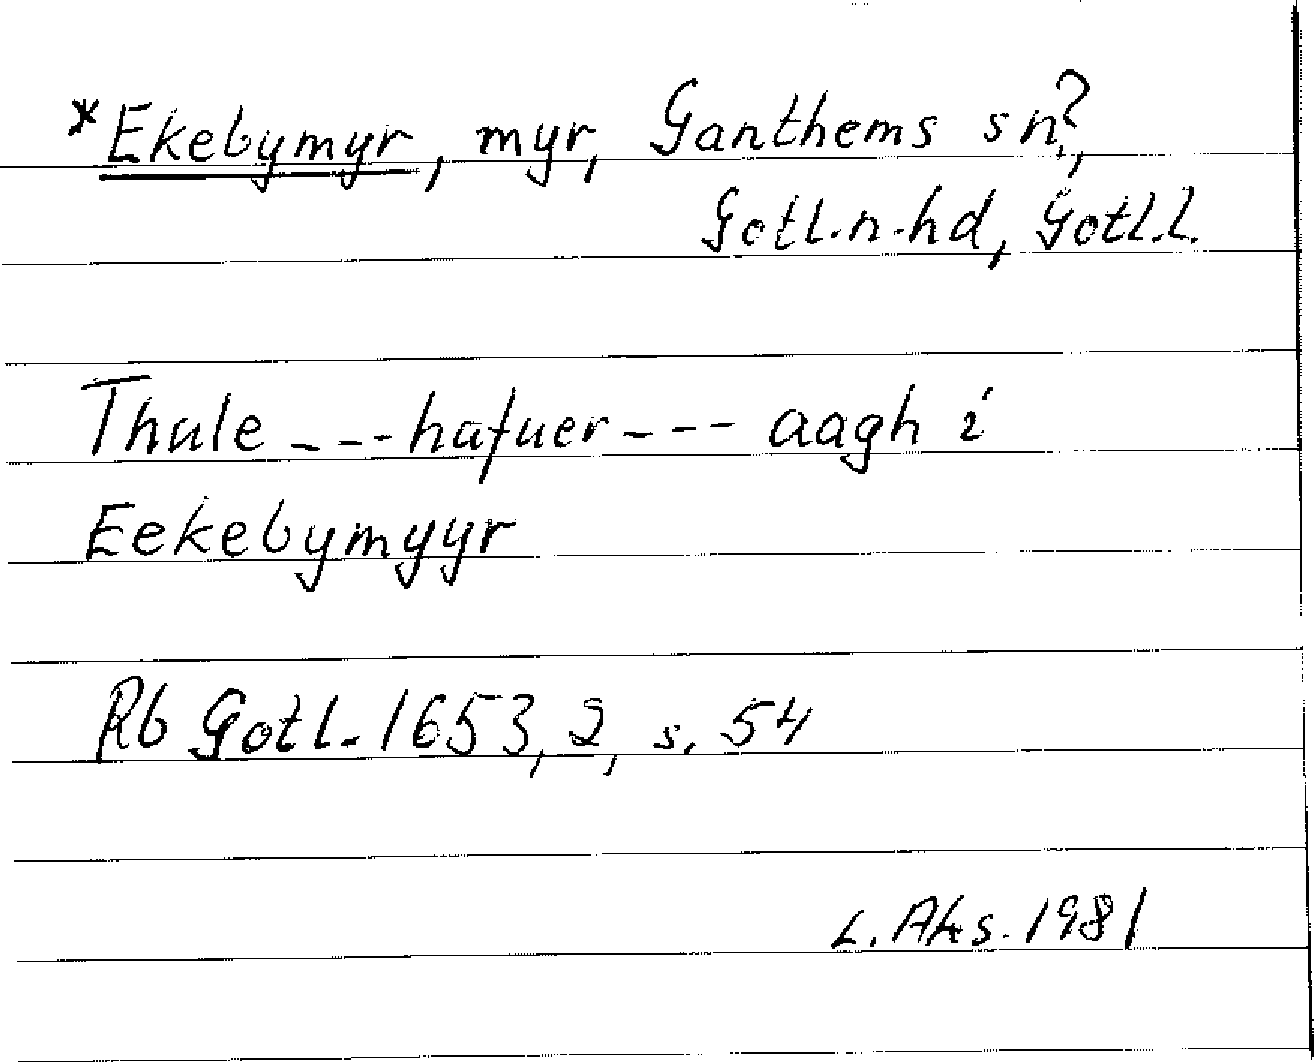 *Ekebymyr, myr, Ganthems sn?,
Gotl.n.hd, Gotl.l.
Thule --- hafuer --- aagh i
Eekebymyyr
Rb Gotl. 1653, 2, s. 54
L. Ahs. 1981